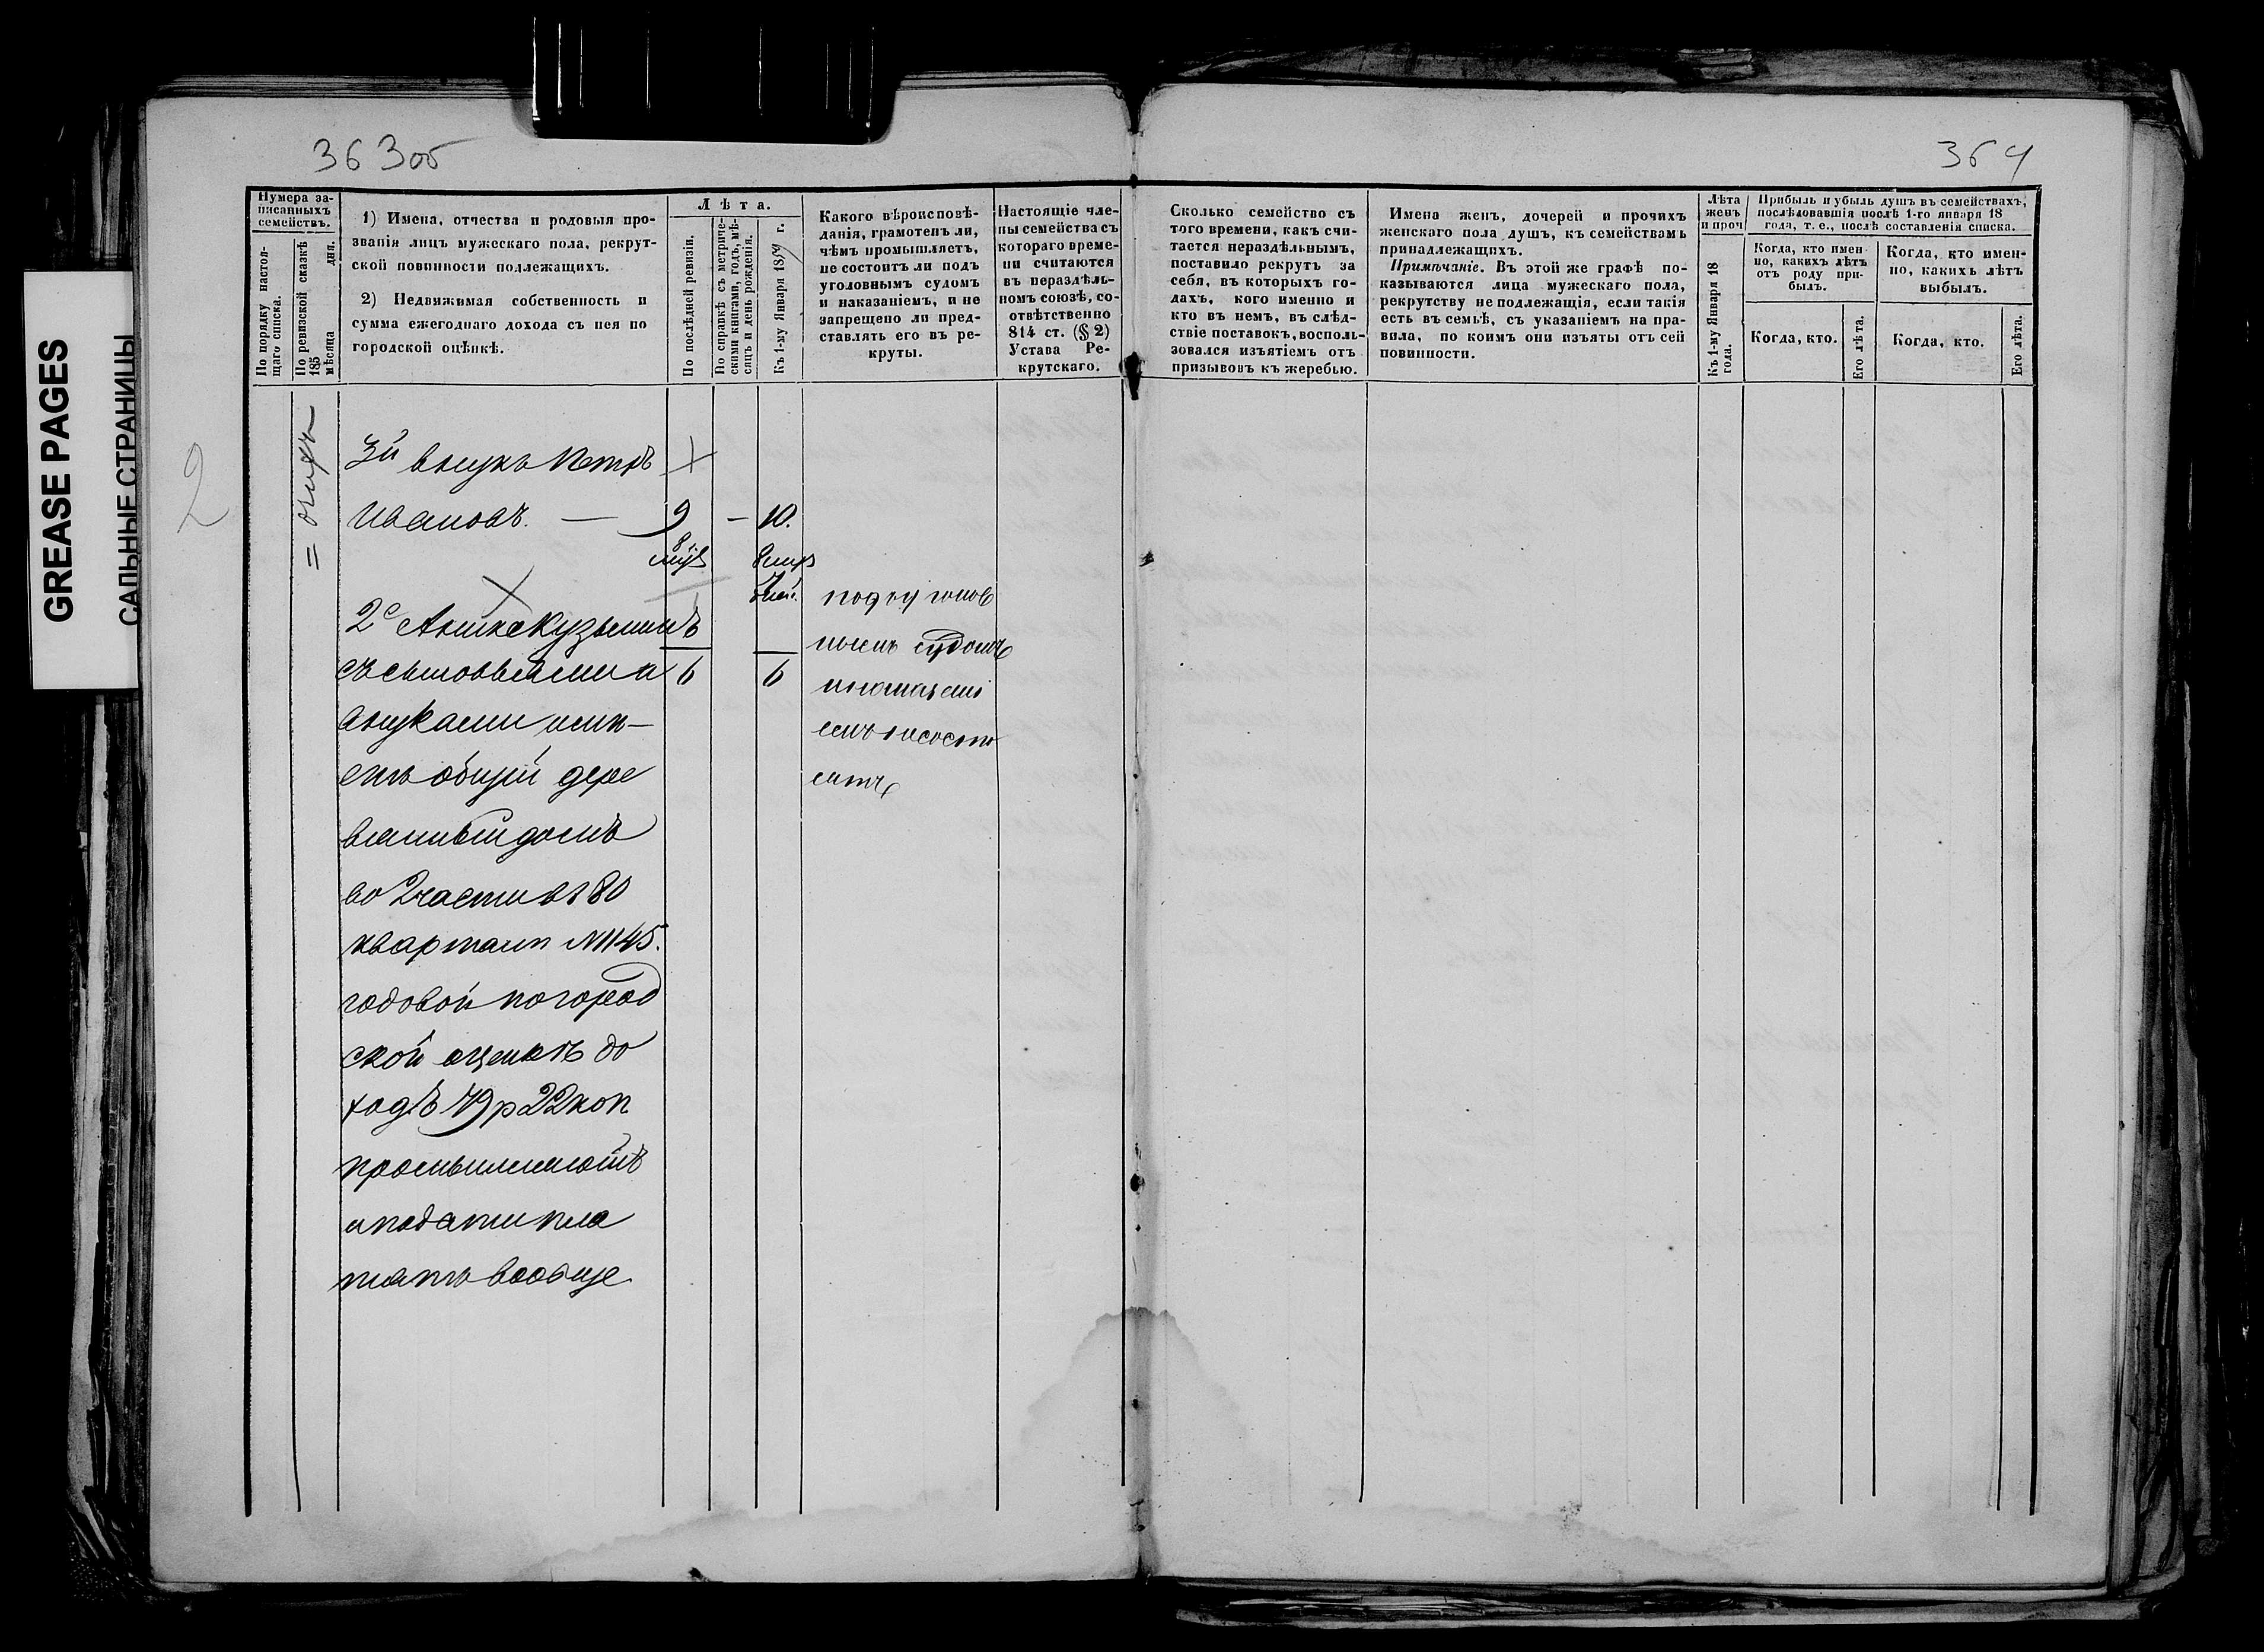 GREASE PAGES
САЛЬНЫЕ СТРАНИЦЫ
363об
364
2
Нумера за-
писанныхъ
семействъ.
По порядку настоя-
щаго списка.
По ревизской сказкѣ
185 дня.
мѣсяца
1) Имена, отчества и родовыя про-
званія лицъ мужескаго пола, рекрут-
ской повинности подлежащихъ.
2) Недвижимая собственность и
сумма ежегоднаго дохода съ нея по
городской оцѣнкѣ.
Лѣта.
По послѣдней ревизіи.
По справкѣ съ метриче-
скими книгами, годъ, мѣ-
сяцъ и день рожденія.
Къ 1-му Января 1859 г.
Какого вѣроисповѣ-
данія, грамотенъ ли,
чѣмъ промышляетъ,
не состоитъ ли подъ
уголовнымъ судомъ
и наказаніемъ, и не
запрещено ли пред-
ставлять его въ ре-
круты.
Настоящіе чле-
ны семейства съ
котораго време-
ни считаются
въ нераздѣль-
номъ союзѣ, со-
отвѣтственно
814 ст. (§ 2)
Устава Ре-
крутскаго.
Сколько семейство съ
того времени, какъ счи-
тается нераздѣльнымъ,
поставило рекрутъ за
себя, въ которыхъ го-
дахъ, кого именно и
кто въ немъ, въ слѣд-
ствіе поставокъ, восполь-
зовался изъятіемъ отъ
призывовъ къ жеребью.
Имена женъ, дочерей и прочихъ
женскаго пола душъ, къ семействамъ
принадлежащихъ.
Примѣчаніе. Въ этой же графѣ по-
казываются лица мужескаго пола,
рекрутству не подлежащія, если такія
есть въ семьѣ, съ указаніемъ на пра-
вила, по коимъ они изъяты отъ сей
повинности.
Лѣта
женъ
и проч
Къ 1-му Января 18
года.
Прибыль и убыль душъ въ семействахъ,
послѣдовавшія послѣ 1-го января 18
года, т. е., послѣ составленія списка.
Когда, кто имен
но, какихъ лѣтъ
отъ роду при-
былъ.
Когда, кто имен-
но, какихъ лѣтъ
выбылъ.
Когда, кто.
Его лѣта.
Когда, кто.
Его лѣта.
3й внукъ Петръ
Ивановъ. — 9 — 10.
подъ уголов
нымъ судомъ
и наказані
емъ не состо
итъ
съ сыновьями и 6 6
внуками имѣ-
етъ общій дере
вянный домъ
во 2 части въ 80
квартал N 1145.
годовой по город
ской оценкѣ до
ходъ 49 р 22 коп
промышляютъ
и подати пла
тятъ вообще